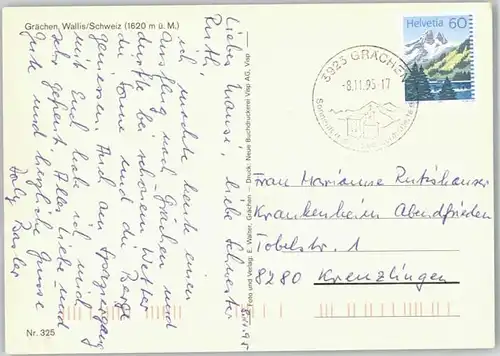 Grächen, Wallis/Schweiz (1620 m ü. M.)
Liebe Mausi, liebe Schwester
Ruth,
ich machte heute einen
Ausflug nach Grächen und
durfte bei schönstem Wetter
die Sonne und die Berge
geniessen. Auch am Spaziergang
mit Euch habe ich mich
sehr gefreut. Alles Liebe und
Gute und herzliche Grüsse
Basler
Nr. 325
Foto und Verlag: E. Walter, Grächen — Druck: Neue Buchdruckerei Visp AG, Visp
3925 GRÄCHEN
-8.11.95-17
Helvetia 60
Frau Marianne Rutishauser
Krankenheim Abendfrieden
Tobelstr. 1
8280 Kreuzlingen